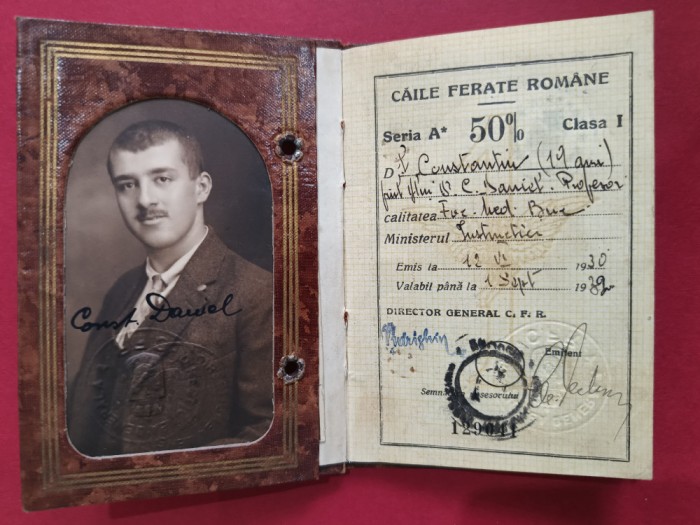 Const. Daniel
CĂILE FERATE ROMÂNE
Seria A* 50% Clasa I
D Constantin (19 ani)
D. C. Daniel. Profesor
calitatea Fac. Med. Buc
Ministerul Instructiei
Emis la 12 VI 1930
Valabil până la 1 Sept 1932
DIRECTOR GENERAL C. F. R.
Emitent
129041